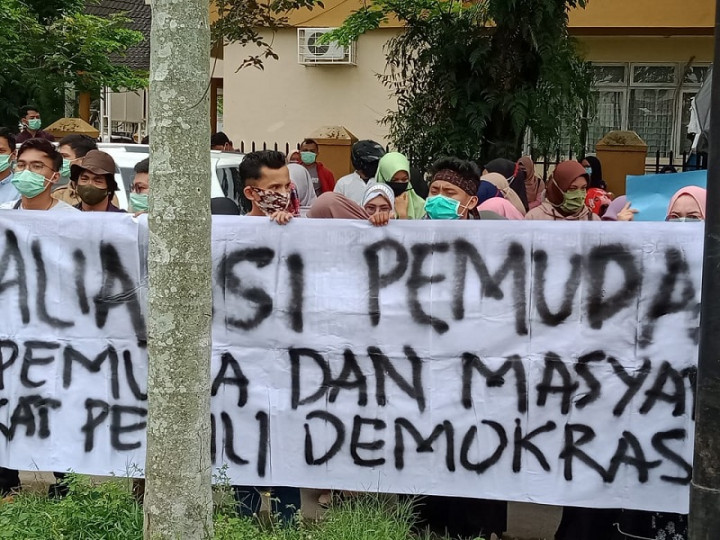 ALIA SI PEMUDA
PEMU A DAN MASYA
AT PE LI DEMOKRAS